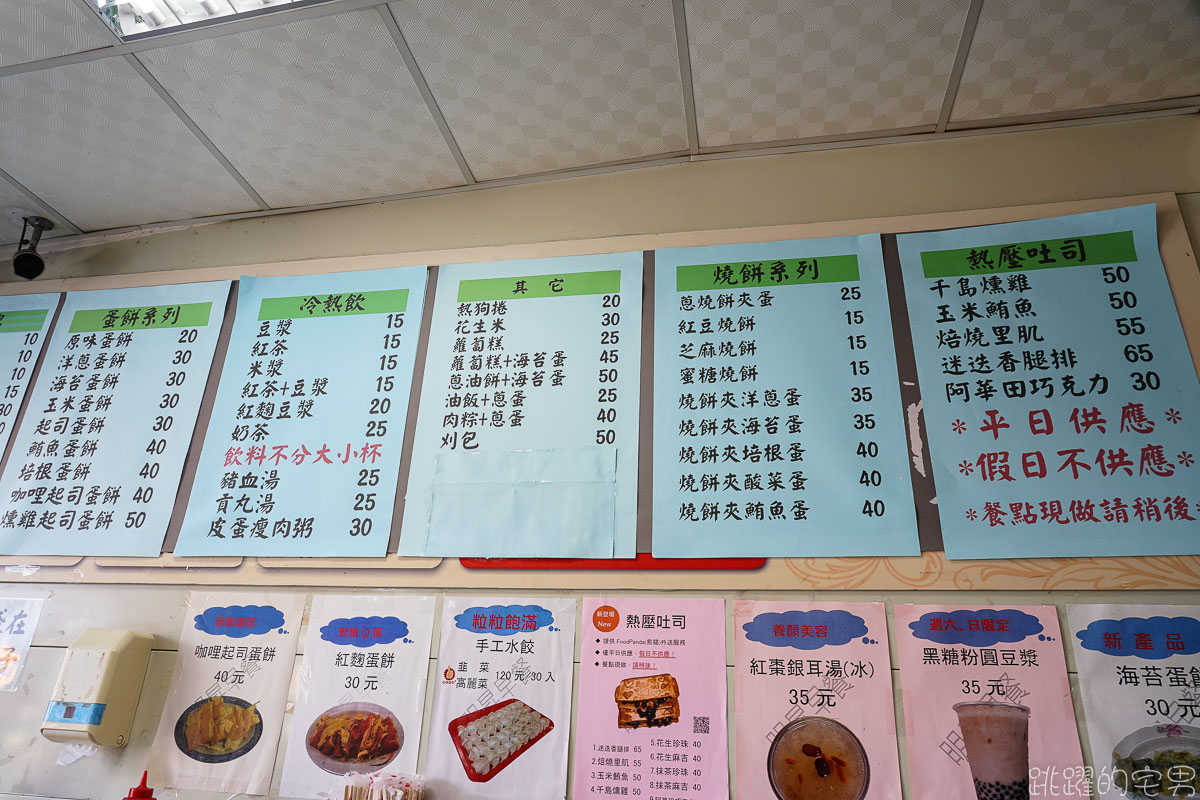 10
10
15
30
10
蛋餅系列
原味蛋餅 20
洋蔥蛋餅 30
海苔蛋餅 30
玉米蛋餅 30
起司蛋餅 30
鮪魚蛋餅 40
培根蛋餅 40
咖哩起司蛋餅 40
燻雞起司蛋餅 50
冷熱飲
豆漿 15
紅茶 15
米漿 15
紅茶+豆漿 15
紅麴豆漿 20
奶茶 25
飲料不分大小杯
豬血湯 25
貢丸湯 25
皮蛋瘦肉粥 30
其它
熱狗捲 20
花生米 30
蘿蔔糕 25
蘿蔔糕+海苔蛋 45
蔥油餅+海苔蛋 50
油飯+蔥蛋 25
肉粽+蔥蛋 40
刈包 50
燒餅系列
蔥燒餅夾蛋 25
紅豆燒餅 15
芝麻燒餅 15
蜜糖燒餅 15
燒餅夾洋蔥蛋 35
燒餅夾海苔蛋 35
燒餅夾培根蛋 40
燒餅夾酸菜蛋 40
燒餅夾鮪魚蛋 40
熱壓吐司
千島燻雞 50
玉米鮪魚 50
焙燒里肌 55
迷迭香腿排 65
阿華田巧克力 30
*平日供應*
*假日不供應*
*餐點現做請稍後*
咖哩起司蛋餅
40元
紅麴蛋餅
30元
粒粒飽滿
手工水餃
韭菜
高麗菜
120元30入
新登場
New
熱壓吐司
◆ 提供 FoodPanda(熊貓)外送服務
◆ 僅平日供應，假日不供應！
◆ 餐點現做，請稍後！
1.迷迭香腿排 65
2.焙燒里肌 55
3.玉米鮪魚 50
4.千島燻雞 50
5.花生珍珠 40
6.花生麻吉 40
7.抹茶珍珠 40
8.抹茶麻吉 40
養顏美容
紅棗銀耳湯(冰)
35元
週六、日限定
黑糖粉圓豆漿
35元
新產品
海苔蛋餅
30元
跳躍的宅男